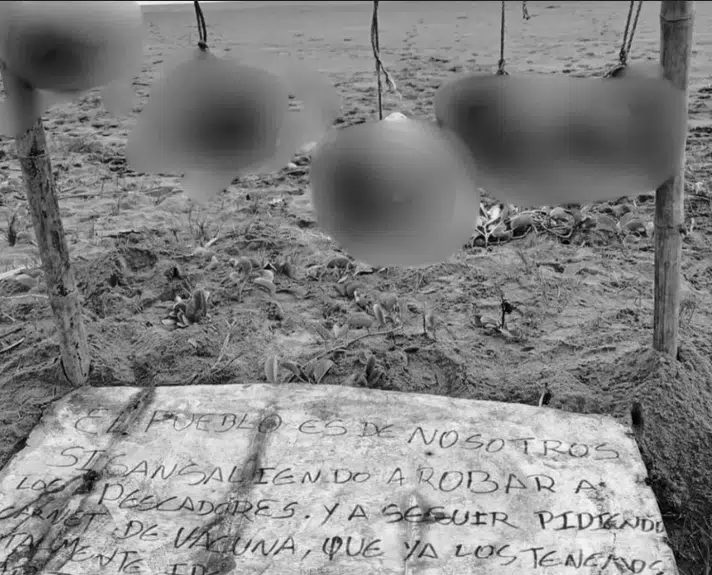 EL PUEBLO ES DE NOSOTROS
SISANSALIENDO A ROBAR A
LOS PESCADORES. Y A SEGUIR PIDIENDO
CARNET DE VACUNA, QUE YA LOS TENEMOS